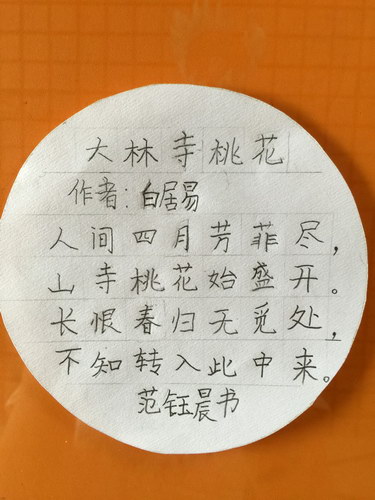 大林寺桃花
作者：白居易
人间四月芳菲尽，
山寺桃花始盛开。
长恨春归无觅处，
不知转入此中来。
范钰晨书